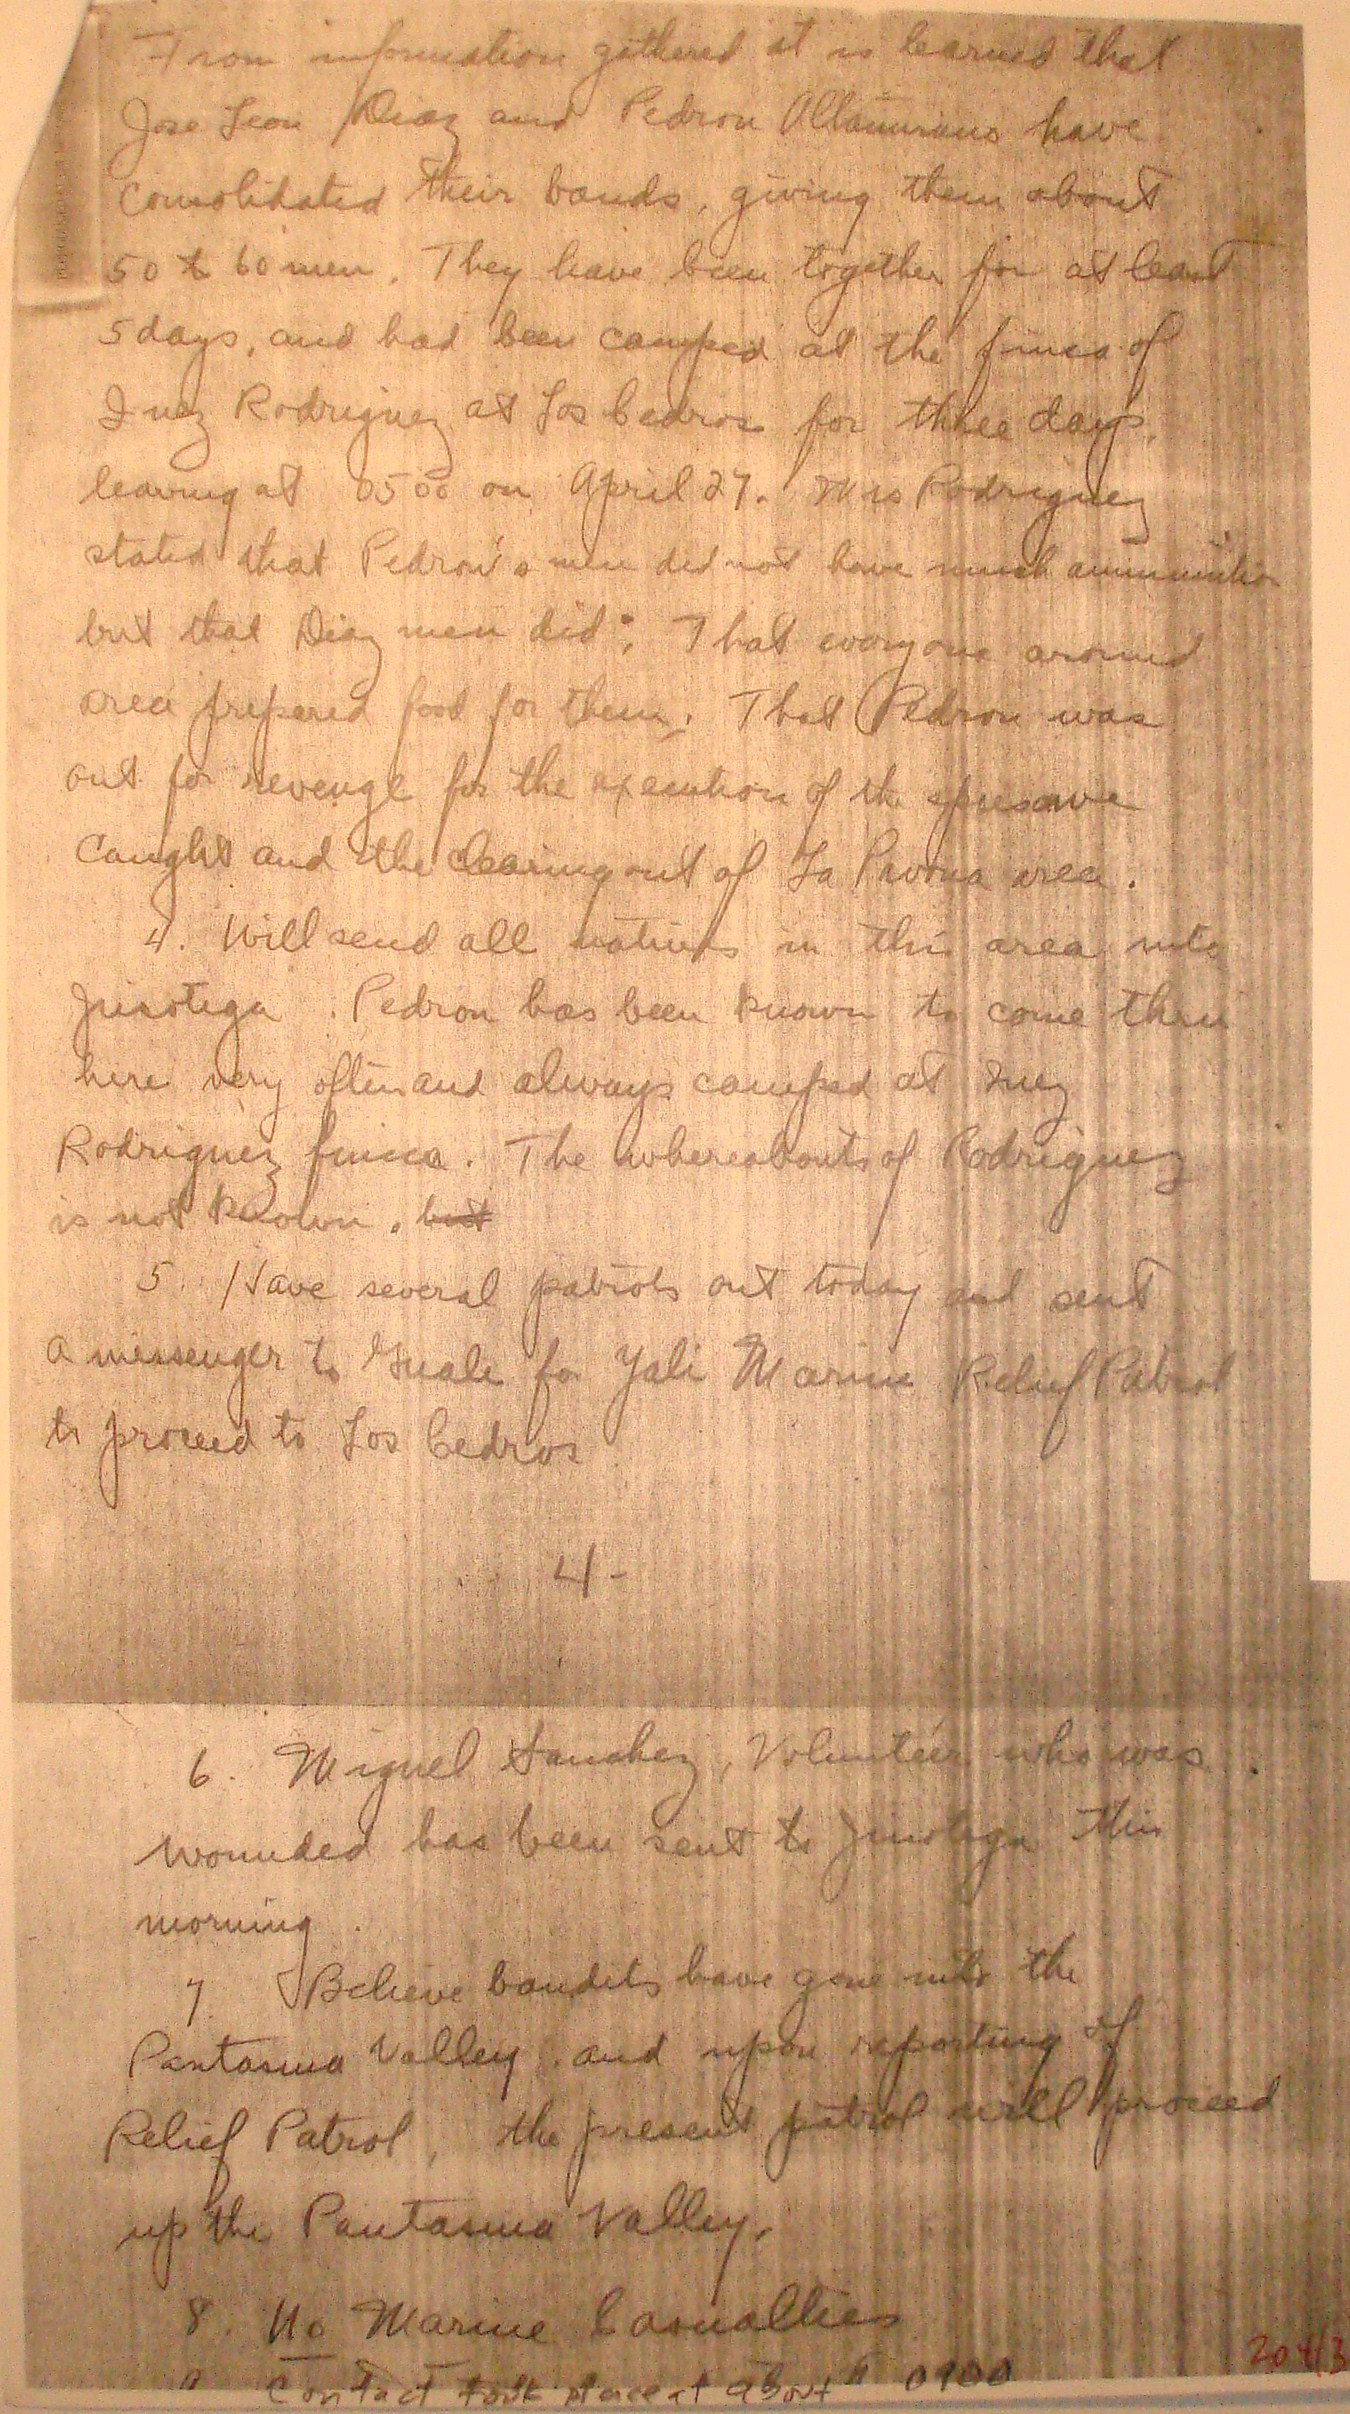 From information gathered it is learned that
Jose Leon Diaz and Pedron Altamirano have
consolidated their bands, giving them about
50 to 60 men. They have been together for at least
5 days, and had been camped at the finca of
Inez Rodriguez at Los Cedros for three days,
leaving at 0500 on April 27. Mrs Rodriguez
stated that Pedron's men did not have much ammunition
but that Diaz men did; That everyone around
area prepared food for them; That Pedron was
out for revenge for the execution of the
caught and the clearing out of La Pavona area.
4. Will send all natives in this area into
Jinotega. Pedron has been known to come thru
here very often and always camped at Inez
Rodriguez finca. The whereabouts of Rodriguez
is not known. but
5. Have several patrols out today and sent
a messenger to Guale for Yali Marine Relief Patrol
to proceed to Los Cedros
4-
6. Miguel Sanchez, Volunteer who was
wounded has been sent to Jinotega this
morning.
7 Believe bandits have gone into the
Pantasma Valley and upon reporting of
Relief Patrol, the present patrol will proceed
up the Pantasma Valley.
8. No Marine Casualties
9 Contact took place at about 0900